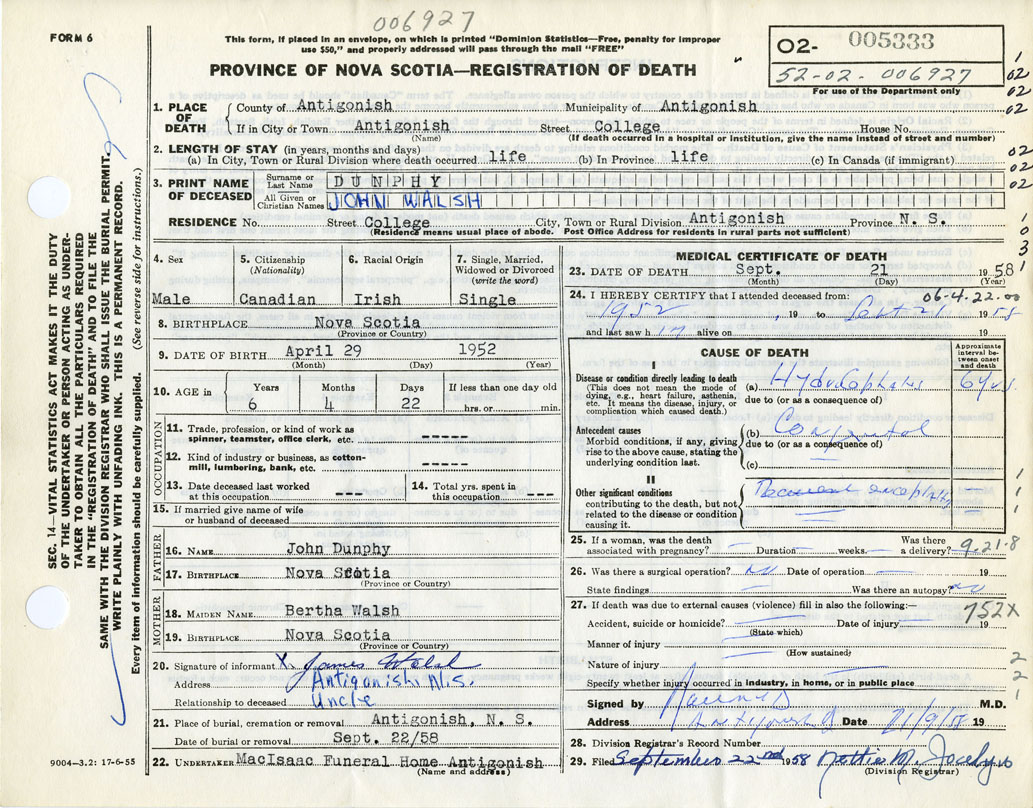 006927
FORM 6
This form, if placed in an envelope, on which is printed "Dominion Statistics—Free, penalty for improper
use $50," and properly addressed will pass through the mail "FREE"
02- 005333
52-02-006927
For use of the Department only
PROVINCE OF NOVA SCOTIA—REGISTRATION OF DEATH
1
02
02
02
1. PLACE OF DEATH
County of Antigonish Municipality of Antigonish
If in City or Town Antigonish Street College House No.
(Name) (If death occurred in a hospital or institution, give the name instead of street and number)
2. LENGTH OF STAY (in years, months and days)
(a) In City, Town or Rural Division where death occurred life (b) In Province life (c) In Canada (if immigrant)
02
02
02
3. PRINT NAME OF DECEASED
Surname or Last Name DUNPHY
All Given or Christian Names JOHN WALSH
RESIDENCE No. Street College City, Town or Rural Division Antigonish Province N. S.
(Residence means usual place of abode. Post Office Address for residents in rural parts not sufficient)
1
0
3
1
SEC. 14—VITAL STATISTICS ACT MAKES IT THE DUTY
OF THE UNDERTAKER OR PERSON ACTING AS UNDER-
TAKER TO OBTAIN ALL THE PARTICULARS REQUIRED
IN THE "REGISTRATION OF DEATH" AND TO FILE THE
SAME WITH THE DIVISION REGISTRAR WHO SHALL ISSUE THE BURIAL PERMIT.
WRITE PLAINLY WITH UNFADING INK. THIS IS A PERMANENT RECORD.
Every item of information should be carefully supplied. (See reverse side for instructions.)
4. Sex
Male
5. Citizenship
(Nationality)
Canadian
6. Racial Origin
Irish
7. Single, Married,
Widowed or Divorced
(write the word)
Single
8. BIRTHPLACE Nova Scotia
(Province or Country)
9. DATE OF BIRTH April 29 1952
(Month) (Day) (Year)
10. AGE in
Years Months Days If less than one day old
6 4 22 hrs. or min.
OCCUPATION
11. Trade, profession, or kind of work as
spinner, teamster, office clerk, etc. -----
12. Kind of industry or business, as cotton-
mill, lumbering, bank, etc. -----
13. Date deceased last worked
at this occupation ---
14. Total yrs. spent in
this occupation ----
15. If married give name of wife
or husband of deceased
FATHER
16. NAME John Dunphy
17. BIRTHPLACE Nova Scotia
(Province or Country)
MOTHER
18. MAIDEN NAME Bertha Walsh
19. BIRTHPLACE Nova Scotia
(Province or Country)
20. Signature of informant X James Walsh
Address Antigonish, N.S.
Relationship to deceased Uncle
21. Place of burial, cremation or removal Antigonish, N. S.
Date of burial or removal Sept. 22/58
22. UNDERTAKER MacIsaac Funeral Home Antigonish
(Name and address)
9004—3.2: 17-6-55
MEDICAL CERTIFICATE OF DEATH
23. DATE OF DEATH Sept. 21 1958
(Month) (Day) (Year)
24. I HEREBY CERTIFY that I attended deceased from: 06-4.22.00
1952, 19 to Sept 21 1958
and last saw him alive on 19
CAUSE OF DEATH
Approximate
interval be-
tween onset
and death
I
Disease or condition directly leading to death
(This does not mean the mode of
dying, e.g., heart failure, asthenia,
etc. It means the disease, injury, or
complication which caused death.)
(a) Hydrocephalus 6 yrs.
due to (or as a consequence of)
Antecedent causes
Morbid conditions, if any, giving
rise to the above cause, stating the
underlying condition last.
(b) Congenital
due to (or as a consequence of)
(c)
II
Other significant conditions
contributing to the death, but not
related to the disease or condition
causing it.
1
1
1
25. If a woman, was the death
associated with pregnancy? Duration weeks. Was there
a delivery? 9.21.8
26. Was there a surgical operation? no Date of operation 19
State findings Was there an autopsy? no
27. If death was due to external causes (violence) fill in also the following:— 752X
Accident, suicide or homicide? Date of injury 19
(State which)
Manner of injury
(How sustained)
Nature of injury
Specify whether injury occurred in industry, in home, or in public place
2
2
1
Signed by M.D.
Address Antigonish Date 21/9/58 19
28. Division Registrar's Record Number
29. Filed September 22nd 1958 M.
(Division Registrar)